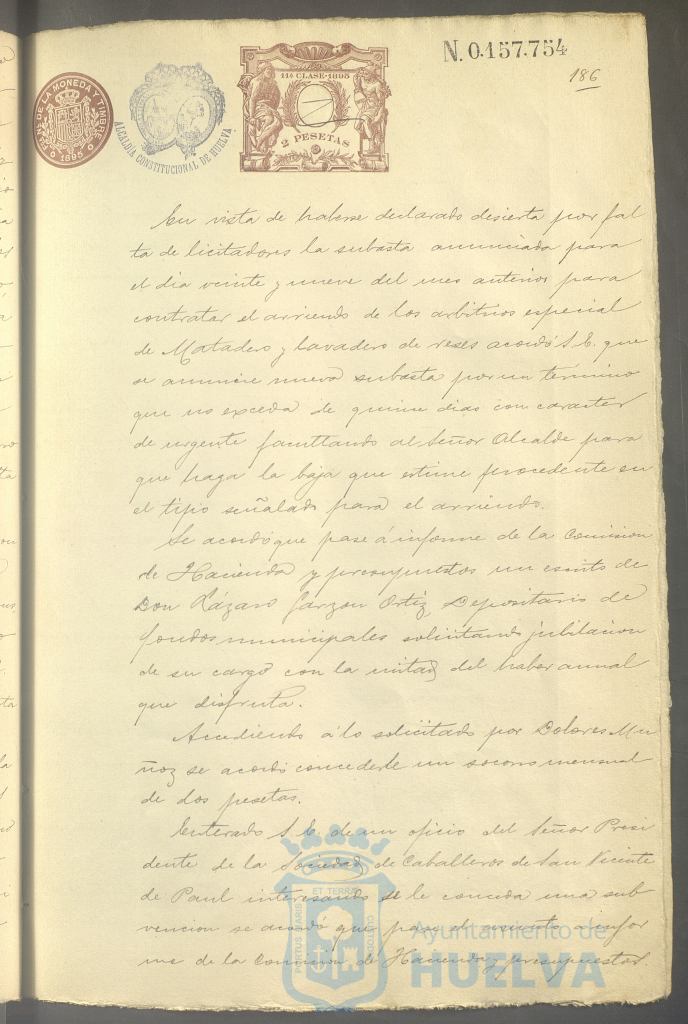 N. 0.157.754
186
FCA NAL DE LA MONEDA Y TIMBRE
1895
ALCALDIA CONSTITUCIONAL DE HUELVA.
11ª CLASE-1895
2 PESETAS
En vista de haberse declarado desierta por fal
ta de licitadores la subasta anunciada para
el dia veinte y nueve del mes anterior para
contratar el arriendo de los arbitrios especial
de Matadero y lavadero de reses acordó S. E. que
se anuncie nueva subasta por un termino
que no exceda de quince dias con caracter
de urgente facultando al Señor Alcalde para
que haga la baja que estime procedente en
el tipo señalado para el arriendo.
Se acordó que pase á informe de la Comision
de Hacienda y presupuestos un escrito de
Don Lázaro Garzon Ortiz Depositario de
fondos municipales solicitando jubilacion
de su cargo con la mitad del haber anual
que disfruta.
Accediendo á lo solicitado por Dolores Mu
ñoz se acordó concederle un socorro mensual
de dos pesetas.
Enterado S. E. de un oficio del Señor Presi
dente de la Sociedad de Caballeros de San Vicente
de Paul interesando se le conceda una sub
vencion se acordó que pase el asunto á infor
me de la Comision de Hacienda y presupuestos.
PORTUS MARIS ET TERRAE CUSTODIA
Ayuntamiento de
HUELVA